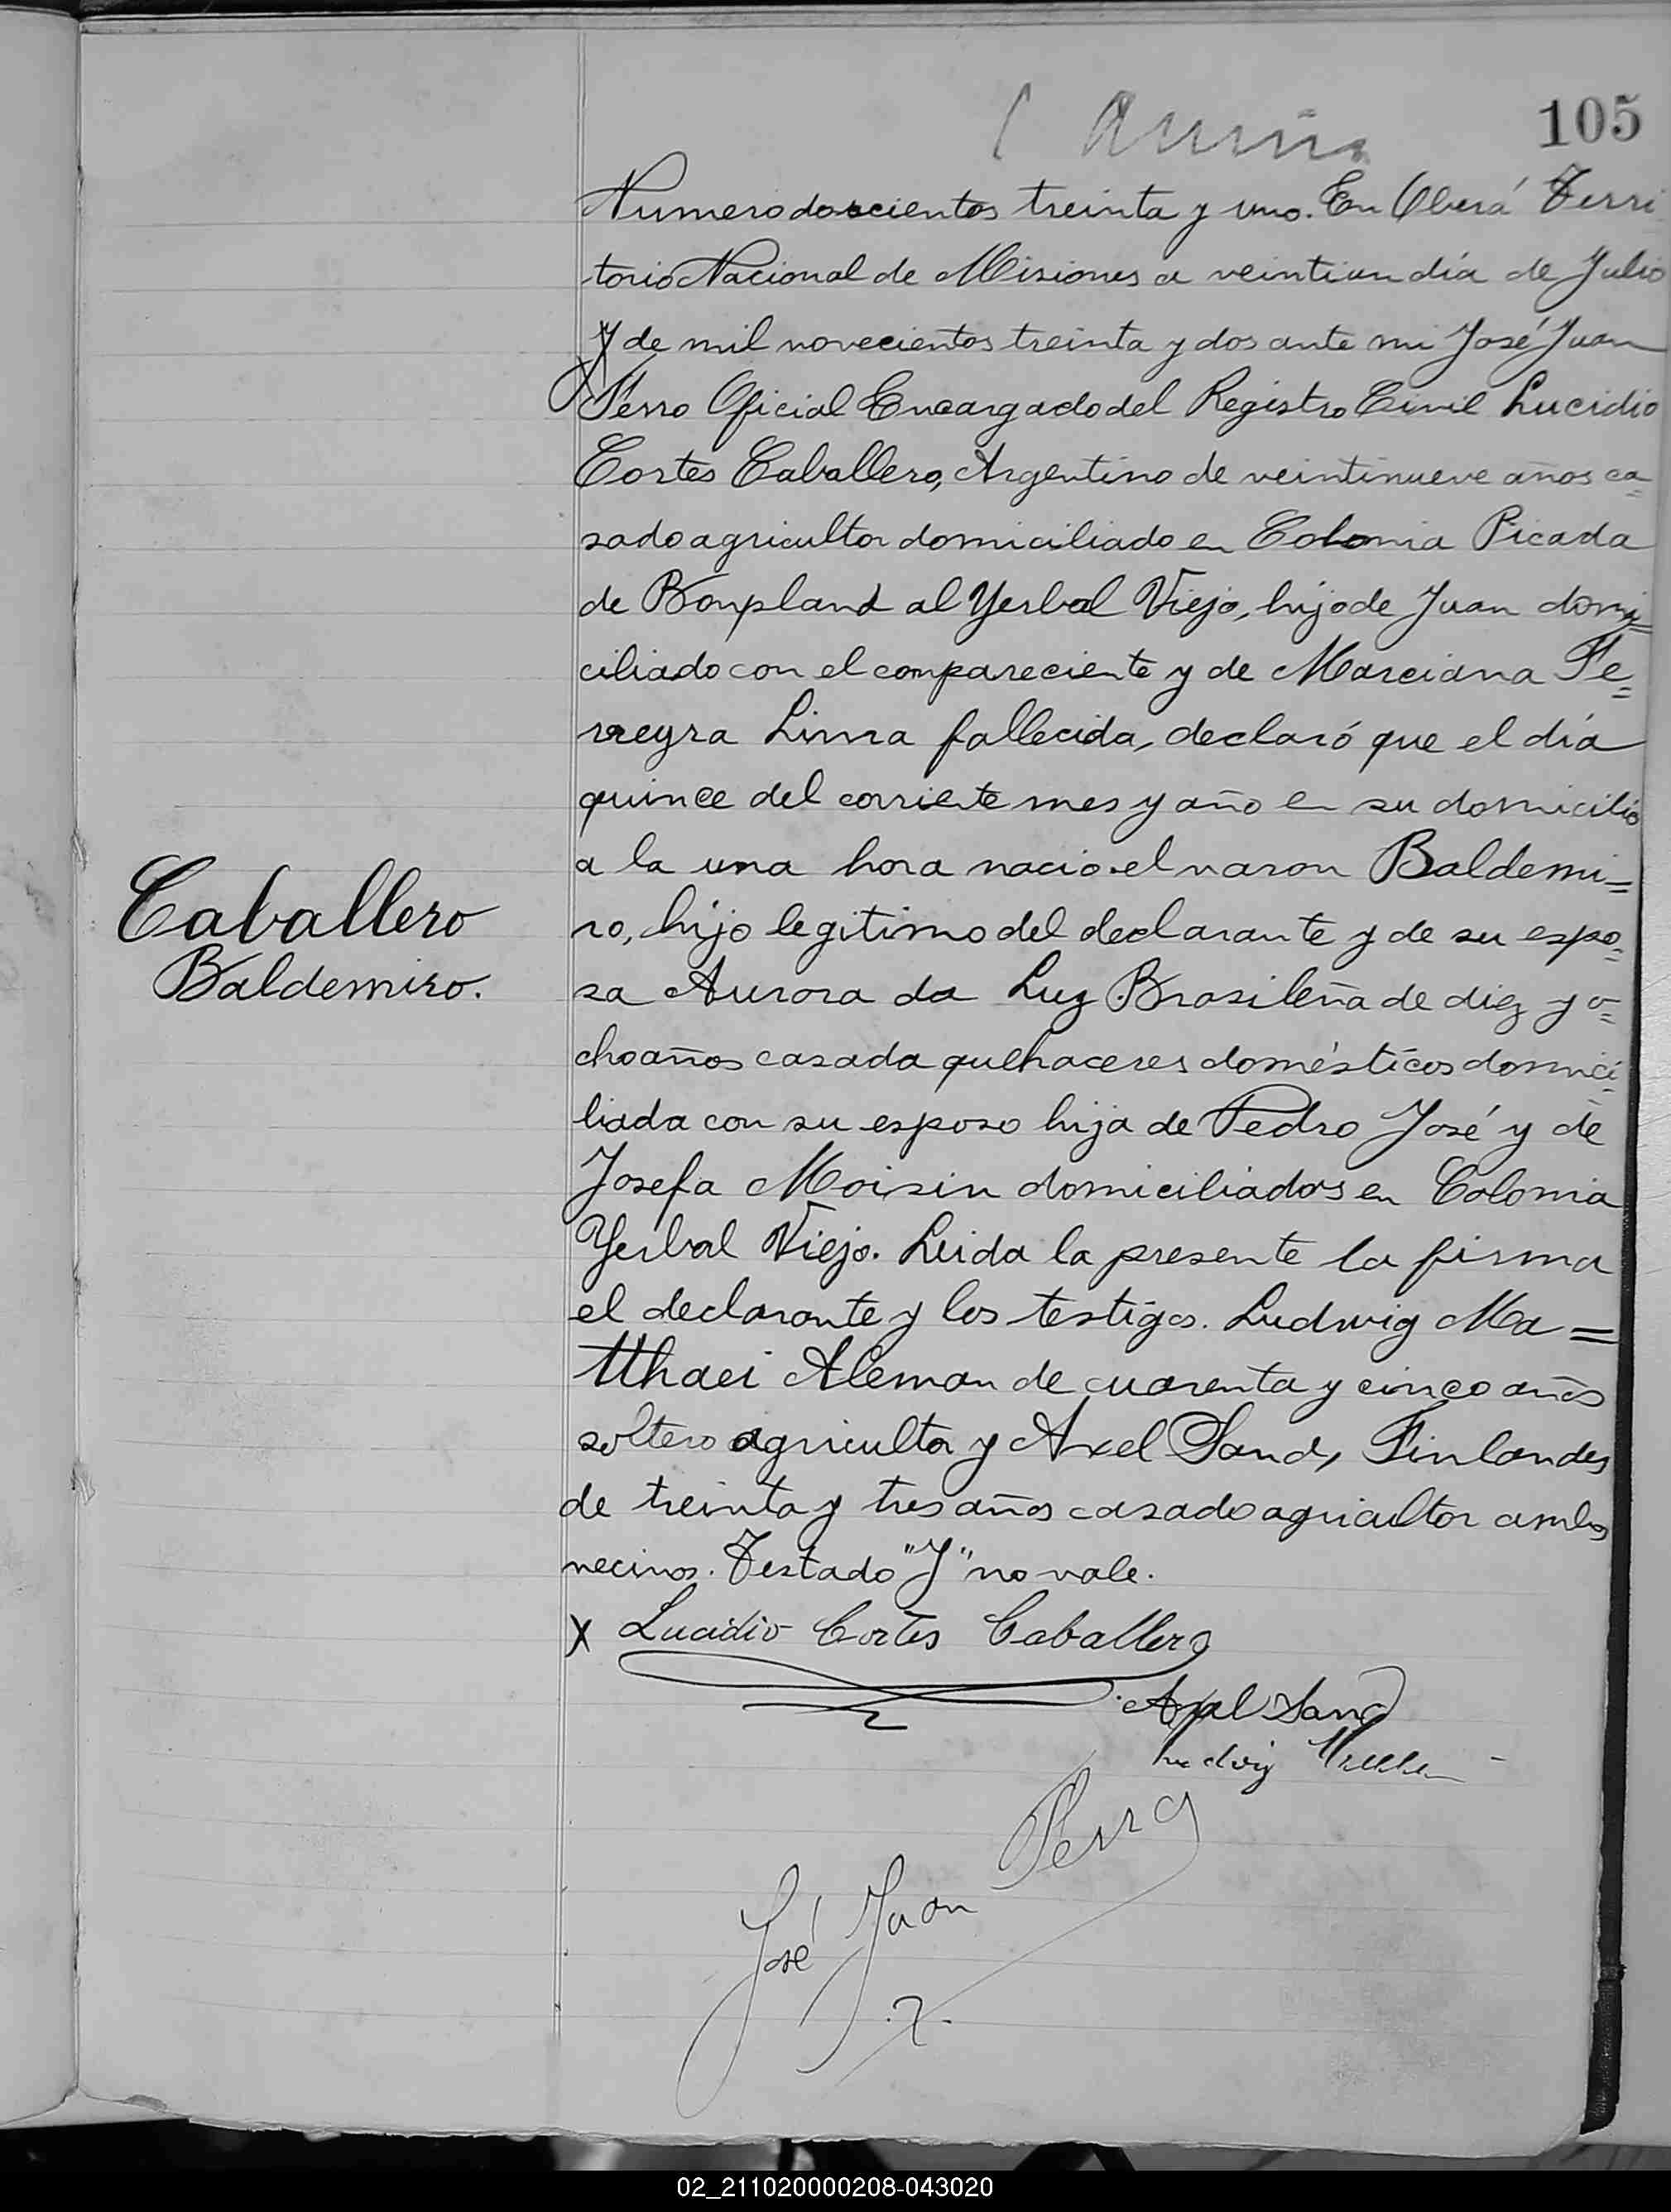 105
Numero doscientos treinta y uno. En Oberá Terri
torio Nacional de Misiones a veintiun día de Julio
Y de mil novecientos treinta y dos ante mi José Juan
Ferro Oficial Encargado del Registro Civil Lucidio
Cortes Caballero, Argentino de veintinueve años ca=
sado agricultor domiciliado en Colonia Picada
de Bonpland al Yerbal Viejo, hijo de Juan domi=
ciliado con el compareciente y de Marciana Fe=
rreyra Lima fallecida, declaró que el día
quince del corriente mes y año en su domicilio
a la una hora nacio el varon Baldemi=
ro, hijo legitimo del declarante y de su espo=
Caballero
Baldemiro.
sa Aurora da Luz Brasileña de diez y o=
cho años casada quehaceres domésticos domici=
liada con su esposo hija de Pedro José y de
Josefa Moisin domiciliados en Colonia
Yerbal Viejo. Leida la presente la firma
el declarante y los testigos. Ludwig Ma=
tthaei Aleman de cuarenta y cinco años
soltero agricultor y Axel Sand, Finlandes
de treinta y tres años casado agricultor ambos
vecinos. Testado "Y" no vale.
X Lucidio Cortes Caballero
Axel Sand
Ludwig
José Juan Ferro
02_211020000208-043020